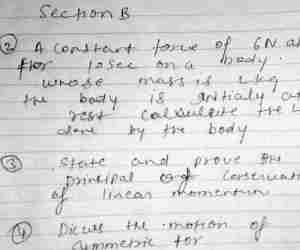 Section B
② A constant force of 6N a
for 10 sec on a body.
whose mass is 4 kg
the body is
rest calculate the
done by the body
③ State and prove the
principal of conservati
of linear momentum
④ Dicuss the motion of
symmetric for